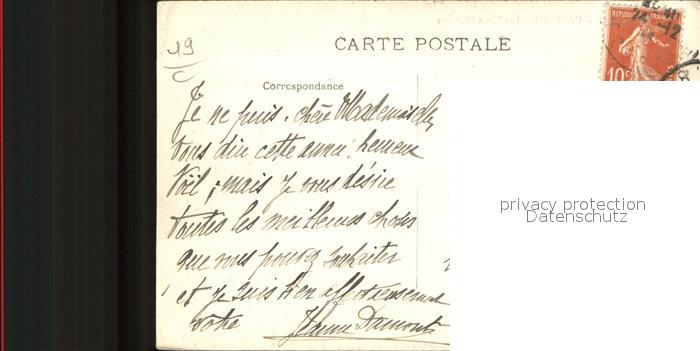 19
CARTE POSTALE
REPUBLIQUE FRANÇAISE
10c
Correspondance
Je ne puis, chère Mademoiselle,
vous dire cette année: heureux
Noël, mais je vous désire
toutes les meilleures choses
que vous pouvez souhaiter
et je suis bien affectueusement
vôtre
privacy protection
Datenschutz